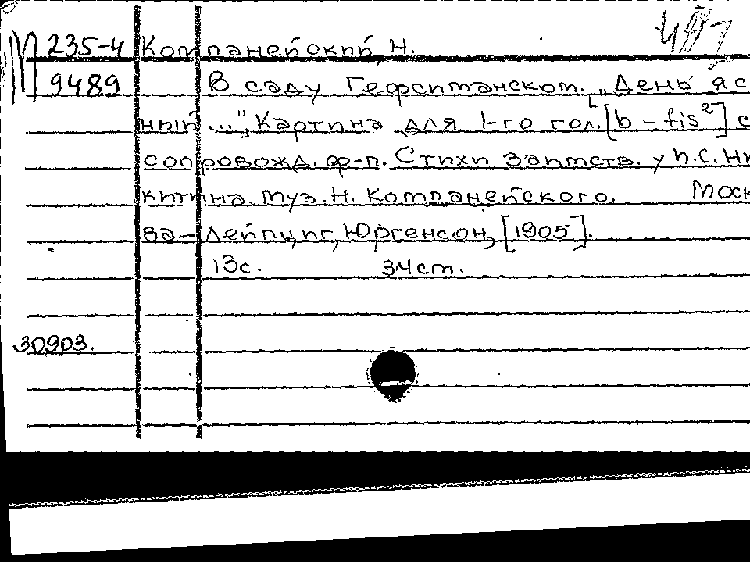 М 235-4 Компанейский, Н.
9489 В саду Гефсиманском. "День яс
ный ...", Картина для 1-го гол. [b - fis²] с
сопровожд. ф-п. Стихи заимств. у И.С. Ни
китина. Муз. Н. Компанейского. Моск
ва - Лейпциг, Юргенсон, [1905].
13с. 34 см.
30903.